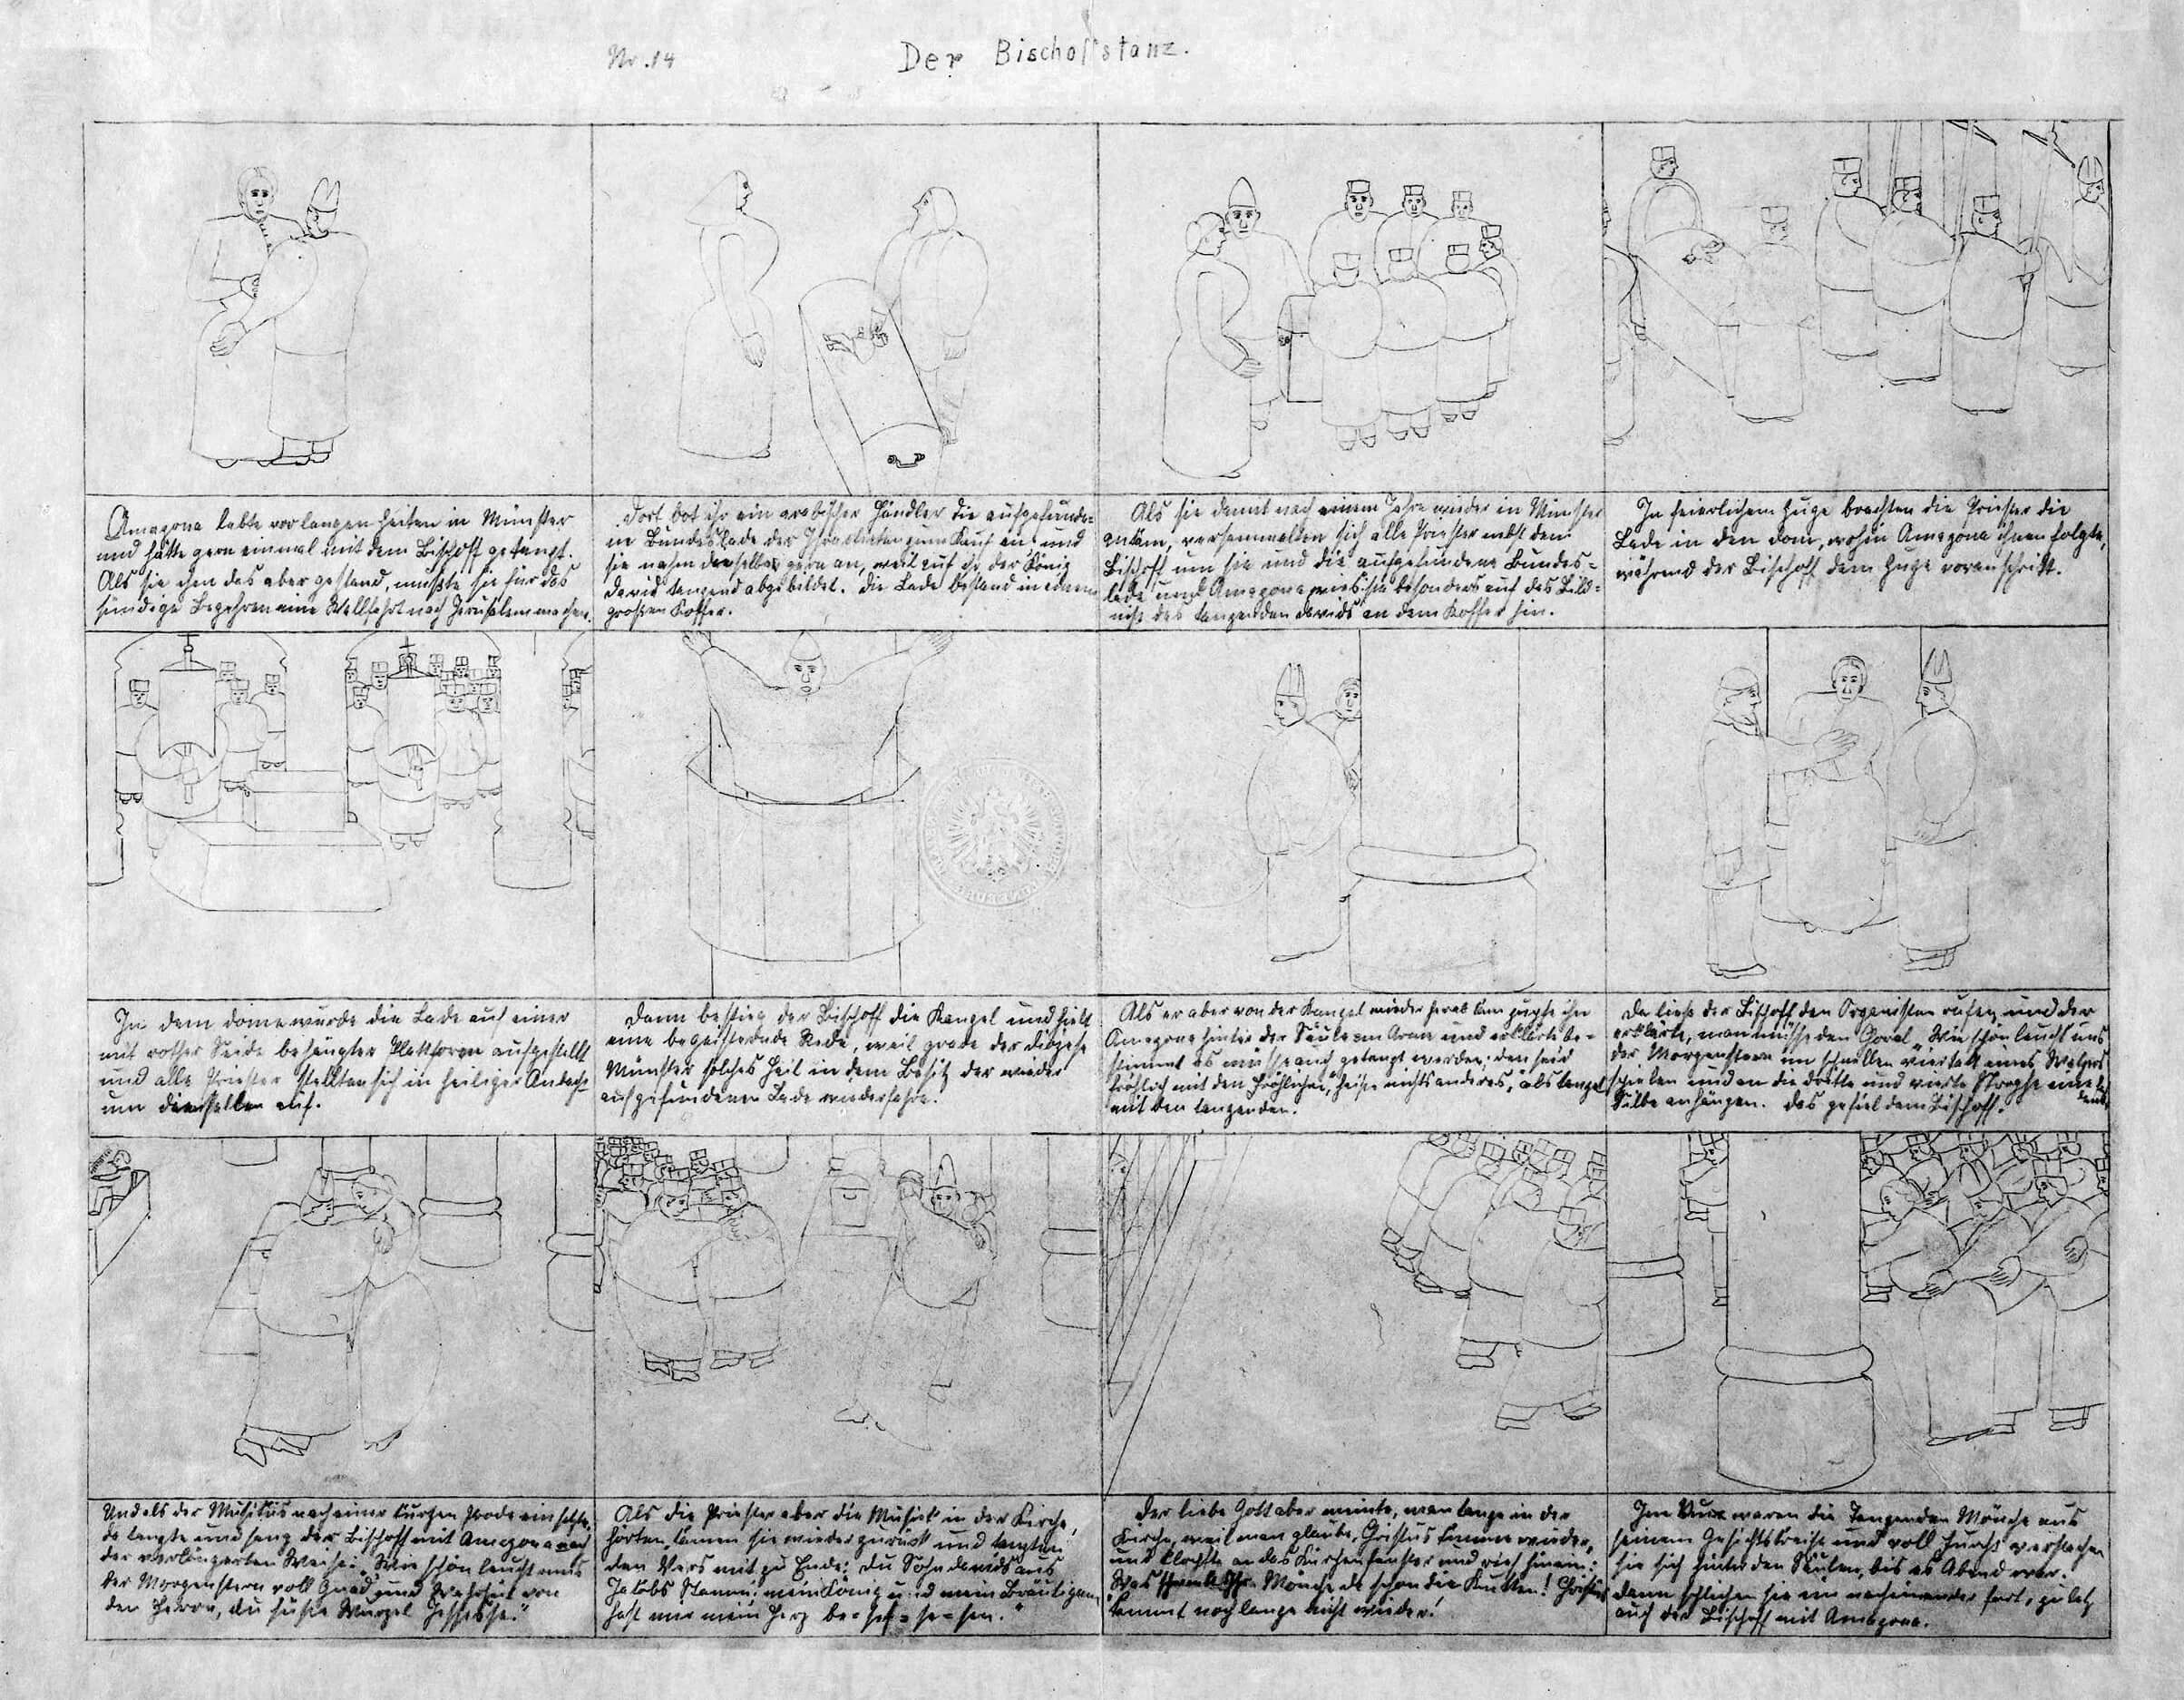 Nr. 14
Der Bischoffstanz.
Amazona lebte vor langen Zeiten in Münster
und hätte gern einmal mit dem Bischoff getanzt.
Als sie ihm das aber gestand, mußte sie für das
sündige Begehren eine Wallfahrt nach Jerusalem machen.
Dort bot ihr ein arabischer Händler die aufgefunde=
ne Bundeslade der Israeliten zum Kauf an und
sie nahm dieselbe gern an, weil auf ihr der König
David tanzend abgebildet. Die Lade bestand in einem
großen Koffer.
Als sie damit nach einem Jahre wieder in Münster
ankam, versammelten sich alle Priester nebst dem
Bischoff um sie und die aufgefundene Bundes=
lade und Amazona wies sie besonders auf das Bild=
niß des tanzenden Davids an dem Koffer hin.
In feierlichem Zuge brachten die Priester die
Lade in den Dom, wohin Amazona ihnen folgte,
während der Bischoff dem Zuge voranschritt.
In dem Dome wurde die Lade auf einer
mit rother Seide behängten Plattform aufgestellt
und alle Priester stellten sich in heiliger Andacht
um dieselbe auf.
Dann bestieg der Bischoff die Kanzel und hielt
eine begeisternde Rede, weil grade der Diözese
Münster solches Heil in dem Besitz der wieder
aufgefundenen Lade wiederfahre.
Als er aber von der Kanzel wieder herab kam zupfte ihn
Amazona hinter der Säule am Arm und erklärte be=
stimmt es müsse auch getanzt werden; den seid
fröhlich mit den Fröhlichen, heiße nichts anderes, als tanzet
mit den tanzenden.
Da ließ der Bischoff den Organisten rufen und der
erklärte, man müsse den Choral „Wie schön leucht uns
der Morgenstern im schnellen viertakt eines Walzers
spielen und an die dritte und vierte Strophe eine
Silbe anhängen. Das gefiel dem Bischoff.
Und als der Musikus nach einer kurzen Probe einsetzte,
da tanzte und sang der Bischoff mit Amazona nach
der verlängerten Weise: „Wie schön leucht uns
der Morgenstern voll Gnad und Wahrheit von
dem Herrn, du süße Wurzel Jessesse."
Als die Priester aber die Musick in der Kirche
hörten, kamen sie wieder zurück und tanzten
den Vers mit zu Ende: Du Sohn Davids aus
Jakobs Stamm, mein König und mein Bräutigam
hast mir mein Herz be=sef=se=sen."
Der liebe Gott aber meinte, man tanze in der
Kirche, weil man glaube, Christus komme wieder,
und klopfte an das Kirchenfenster und rief hinein:
Was Mönche da schon die Kutten! Christus
kommt noch lange nicht wieder!
Im waren die Tanzenden Mönche aus
seinem Gesichtskreise und voll Furcht versteckten
sie sich hinter den Säulen, bis es Abend war.
dann schlichen sie ein nacheinander fort, zuletzt
auch der Bischoff mit Amazona.